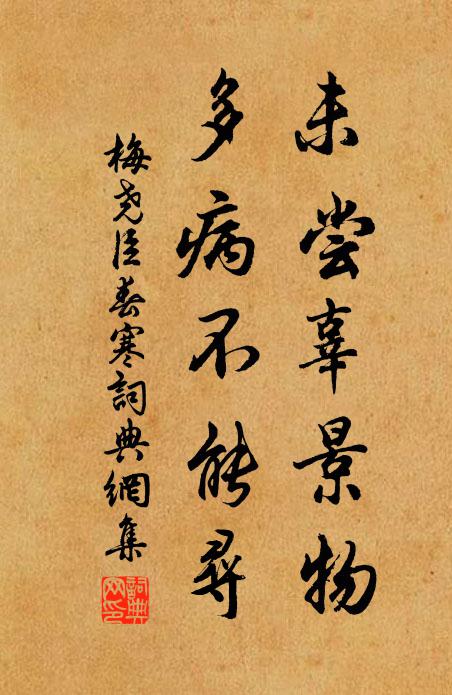 未尝辜景物
多病不能寻
梅尧臣春寒詞典網集
詞典网印